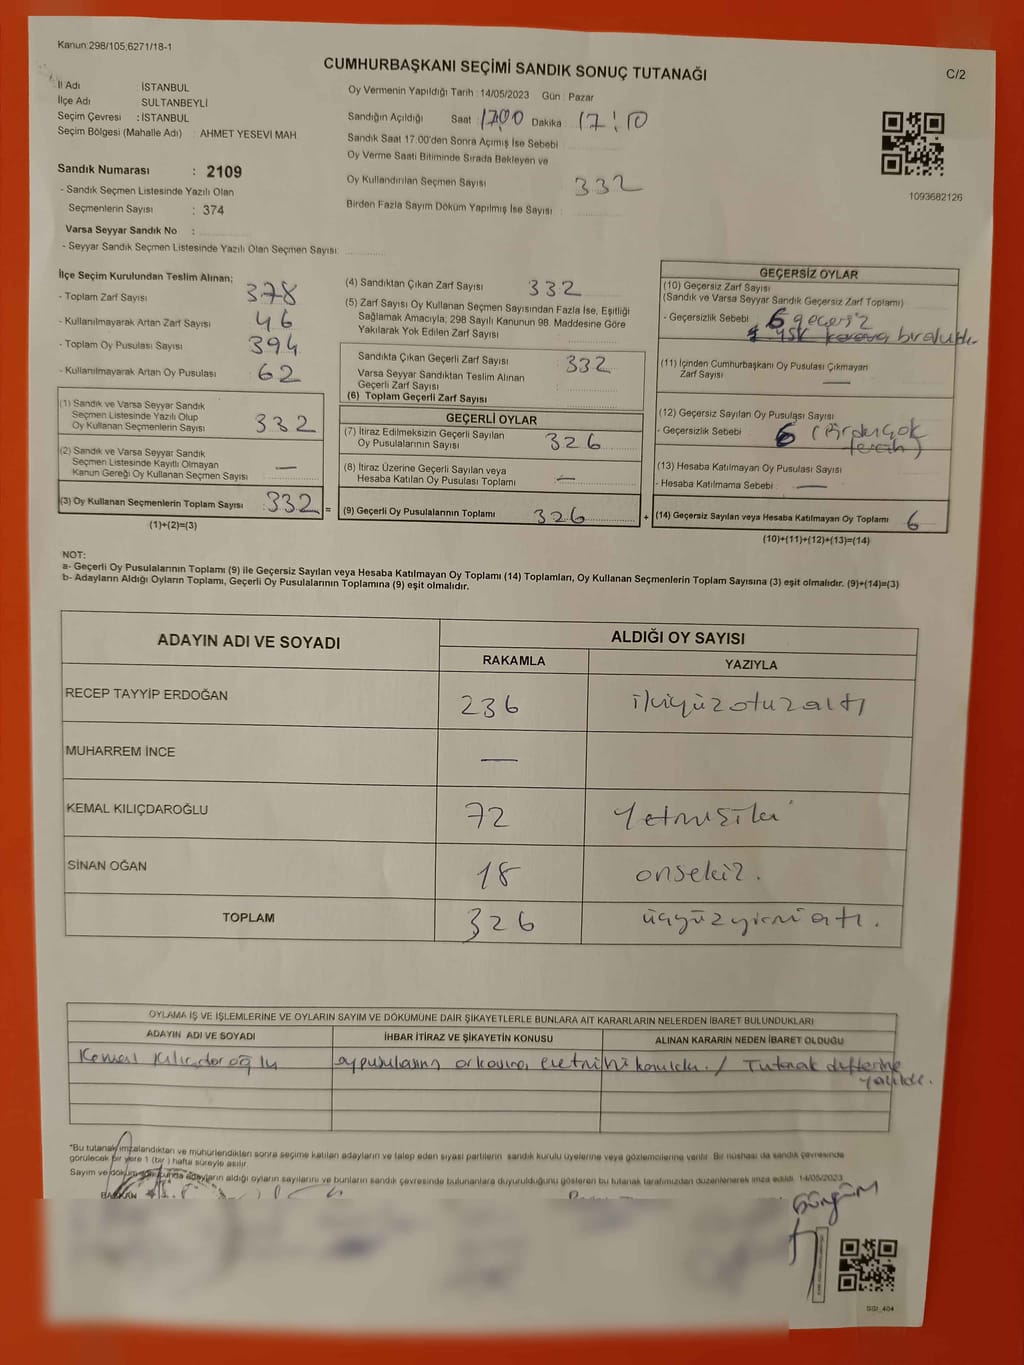 Kanun:298/105;6271/18-1
CUMHURBAŞKANI SEÇİMİ SANDIK SONUÇ TUTANAĞI
C/2
İl Adı İSTANBUL
İlçe Adı SULTANBEYLİ
Seçim Çevresi : İSTANBUL
Seçim Bölgesi (Mahalle Adı) : AHMET YESEVİ MAH
Sandık Numarası : 2109
- Sandık Seçmen Listesinde Yazılı Olan
Seçmenlerin Sayısı : 374
Varsa Seyyar Sandık No :
- Seyyar Sandık Seçmen Listesinde Yazılı Olan Seçmen Sayısı:
Oy Vermenin Yapıldığı Tarih :14/05/2023 Gün : Pazar
Sandığın Açıldığı Saat 17,00 Dakika 17:10
Sandık Saat 17.00'den Sonra Açımış İse Sebebi
Oy Verme Saati Bitiminde Sırada Bekleyen ve
Oy Kullandırılan Seçmen Sayısı 332
Birden Fazla Sayım Döküm Yapılmış İse Sayısı :
1093682126
İlçe Seçim Kurulundan Teslim Alınan;
- Toplam Zarf Sayısı 378
- Kullanılmayarak Artan Zarf Sayısı 46
- Toplam Oy Pusulası Sayısı 394
- Kullanılmayarak Artan Oy Pusulası 62
(1) Sandık ve Varsa Seyyar Sandık
Seçmen Listesinde Yazılı Olup
Oy Kullanan Seçmenlerin Sayısı 332
(2) Sandık ve Varsa Seyyar Sandık
Seçmen Listesinde Kayıtlı Olmayan
Kanun Gereği Oy Kullanan Seçmen Sayısı —
(3) Oy Kullanan Seçmenlerin Toplam Sayısı : 332
(1)+(2)=(3)
(4) Sandıktan Çıkan Zarf Sayısı 332
(5) Zarf Sayısı Oy Kullanan Seçmen Sayısından Fazla İse, Eşitliği
Sağlamak Amacıyla; 298 Sayılı Kanunun 98. Maddesine Göre
Yakılarak Yok Edilen Zarf Sayısı
Sandıkta Çıkan Geçerli Zarf Sayısı 332
Varsa Seyyar Sandıktan Teslim Alınan
Geçerli Zarf Sayısı
(6) Toplam Geçerli Zarf Sayısı
GEÇERLİ OYLAR
(7) İtiraz Edilmeksizin Geçerli Sayılan
Oy Pusulalarının Sayısı 326
(8) İtiraz Üzerine Geçerli Sayılan veya
Hesaba Katılan Oy Pusulası Toplamı —
= (9) Geçerli Oy Pusulalarının Toplamı 326
GEÇERSİZ OYLAR
(10) Geçersiz Zarf Sayısı
(Sandık ve Varsa Seyyar Sandık Geçersiz Zarf Toplamı)
- Geçersizlik Sebebi 6 geçersiz
YSK
(11) İçinden Cumhurbaşkanı Oy Pusulası Çıkmayan
Zarf Sayısı —
(12) Geçersiz Sayılan Oy Pusulası Sayısı
- Geçersizlik Sebebi 6 (Birden çok
tercih)
(13) Hesaba Katılmayan Oy Pusulası Sayısı
- Hesaba Katılmama Sebebi : —
+ (14) Geçersiz Sayılan veya Hesaba Katılmayan Oy Toplamı 6
(10)+(11)+(12)+(13)=(14)
NOT:
a- Geçerli Oy Pusulalarının Toplamı (9) ile Geçersiz Sayılan veya Hesaba Katılmayan Oy Toplamı (14) Toplamları, Oy Kullanan Seçmenlerin Toplam Sayısına (3) eşit olmalıdır. (9)+(14)=(3)
b- Adayların Aldığı Oyların Toplamı, Geçerli Oy Pusulalarının Toplamına (9) eşit olmalıdır.
ADAYIN ADI VE SOYADI ALDIĞI OY SAYISI
RAKAMLA YAZIYLA
RECEP TAYYİP ERDOĞAN 236 ikiyüzotuzaltı
MUHARREM İNCE —
KEMAL KILIÇDAROĞLU 72 Yetmişiki
SİNAN OĞAN 18 onsekiz.
TOPLAM 326 üçyüzyirmi altı.
OYLAMA İŞ VE İŞLEMLERİNE VE OYLARIN SAYIM VE DÖKÜMÜNE DAİR ŞİKAYETLERLE BUNLARA AİT KARARLARIN NELERDEN İBARET BULUNDUKLARI
ADAYIN ADI VE SOYADI İHBAR İTİRAZ VE ŞİKAYETİN KONUSU ALINAN KARARIN NEDEN İBARET OLDUĞU
Kemal Kılıçdaroğlu oy pusulasının arkasına / Tutanak defterine
yazıldı.
"Bu tutanak imzalandıktan ve mühürlendikten sonra seçime katılan adayların ve talep eden siyasi partilerin sandık kurulu üyelerine veya gözlemcilerine verilir. Bir nüshası da sandık çevresinde
görülecek bir yere 1 (bir ) hafta süreyle asılır.
Sayım ve döküm adayların aldığı oyların sayılarını ve bunların sandık çevresinde bulunanlara duyurulduğunu gösteren bu tutanak tarafımızdan düzenlenerek imza edildi. 14/05/2023
BAŞKAN
SGİ_404